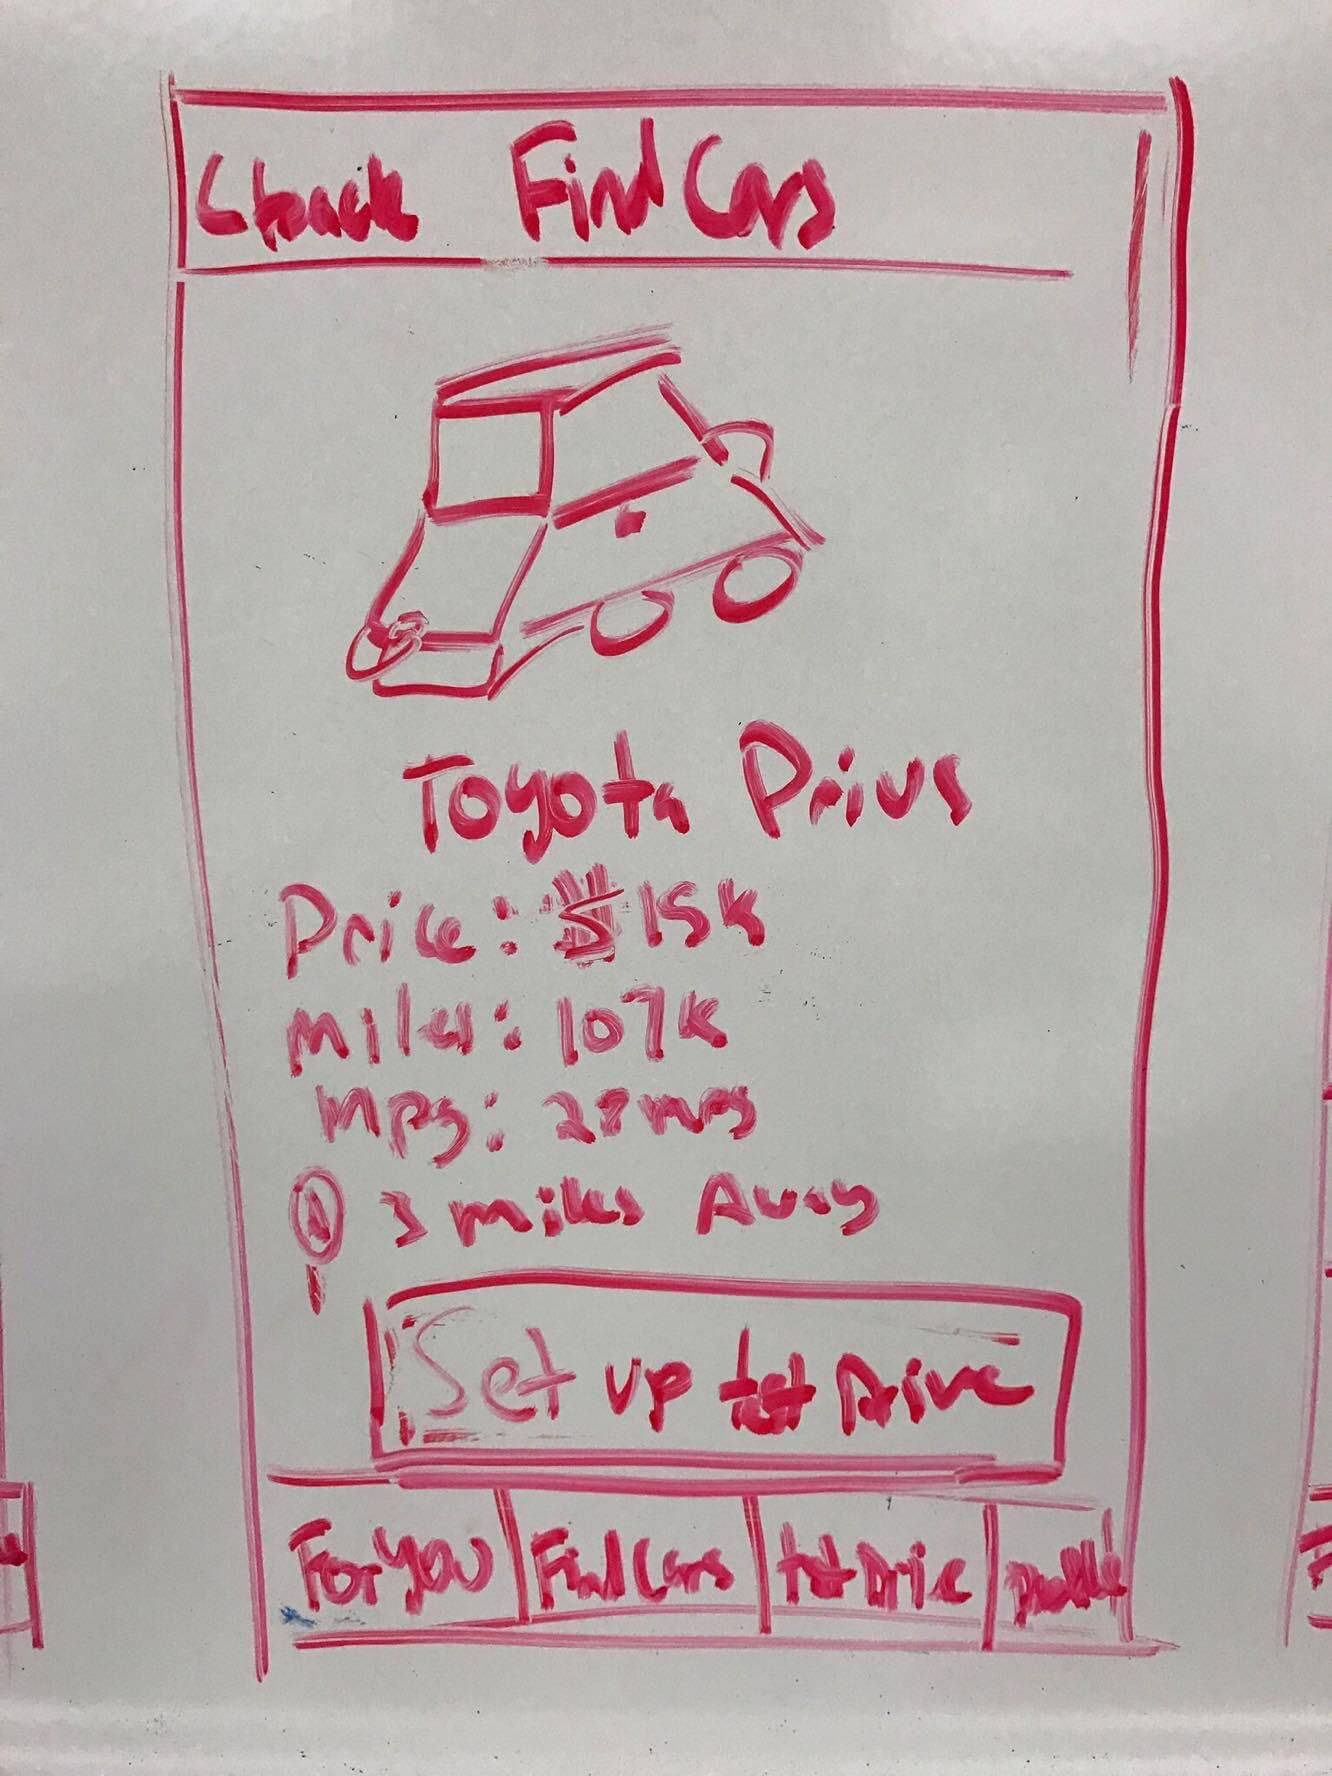 < back Find Cars
Toyota Prius
Price: $15k
Miles: 107k
Mpg: 28 mpg
3 miles Away
Set up test Drive
For you Find Cars test Drive profile